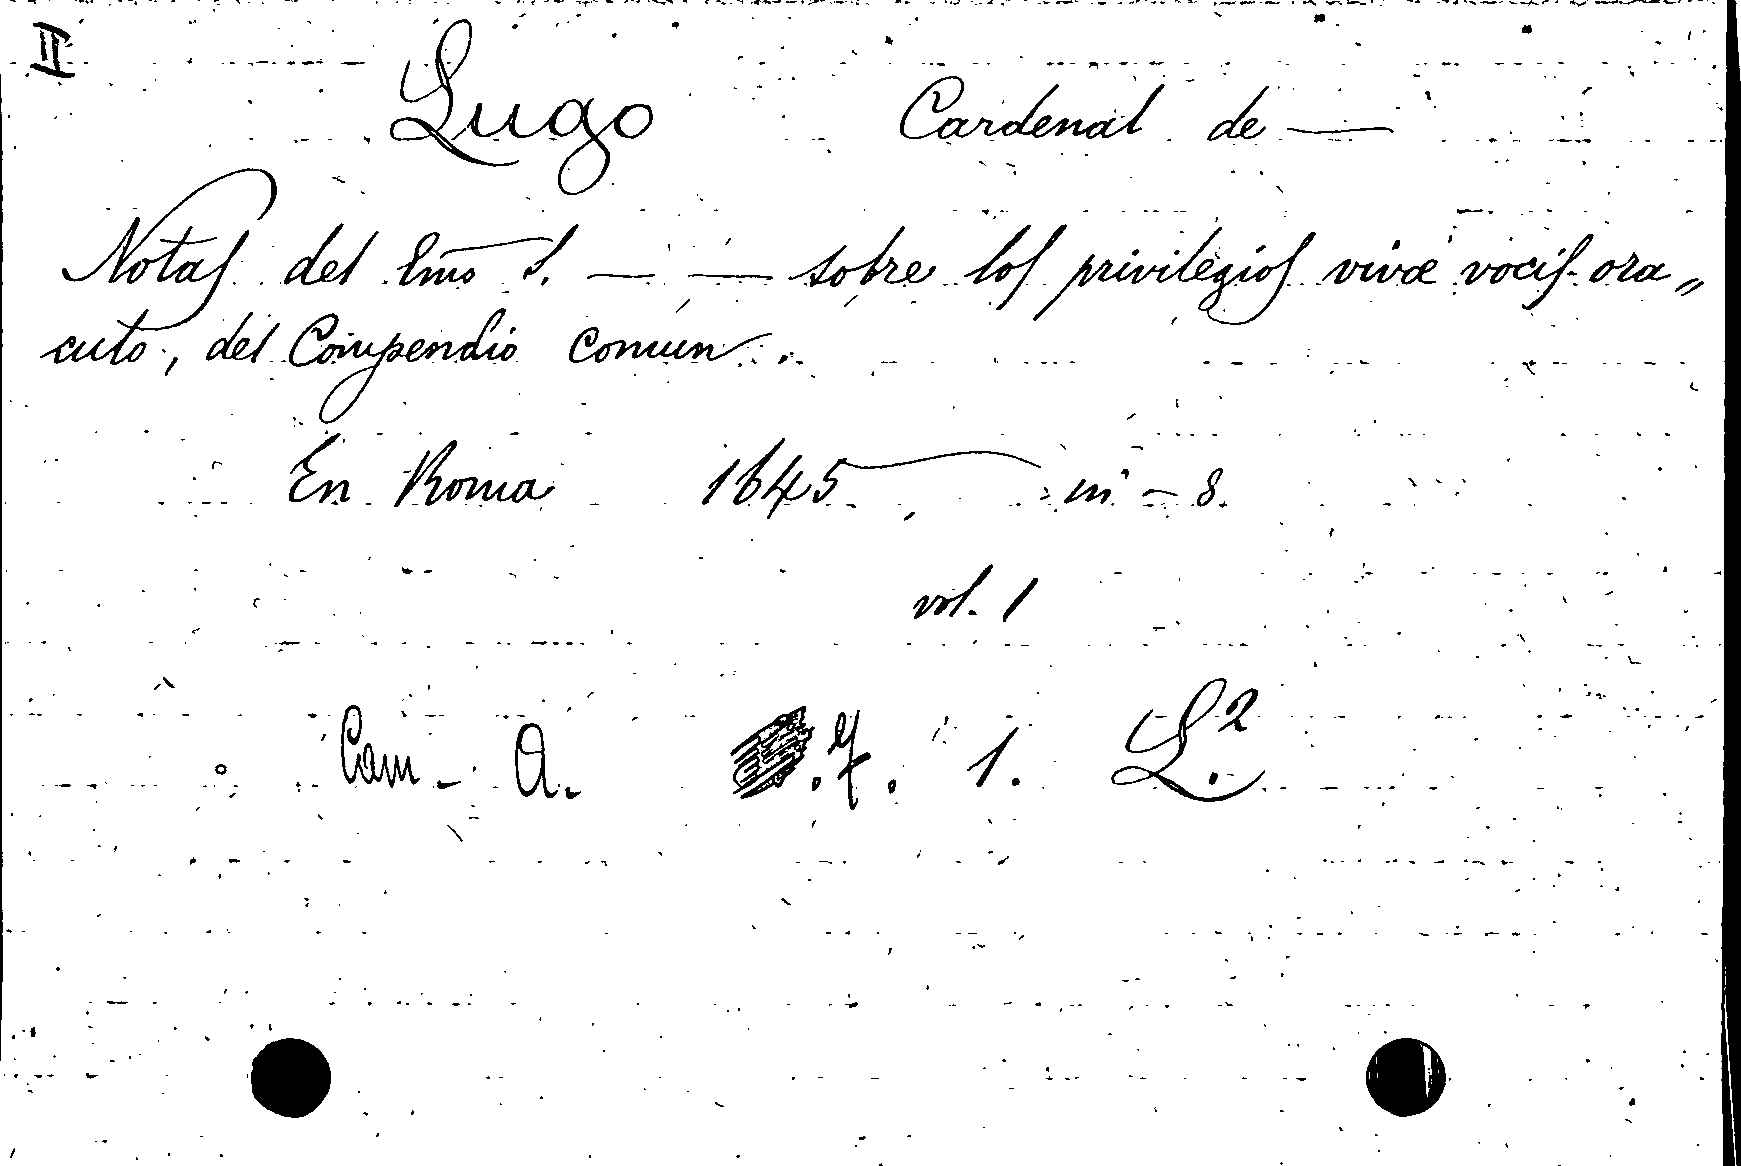 II
Lugo Cardenal de —
Notas del Emo S. — — sobre los privilegios vivæ vocis ora„
culo, del Compendio comun.
En Roma 1645 in - 8.
vol. 1
Cam. A. . 7. 1. L.2